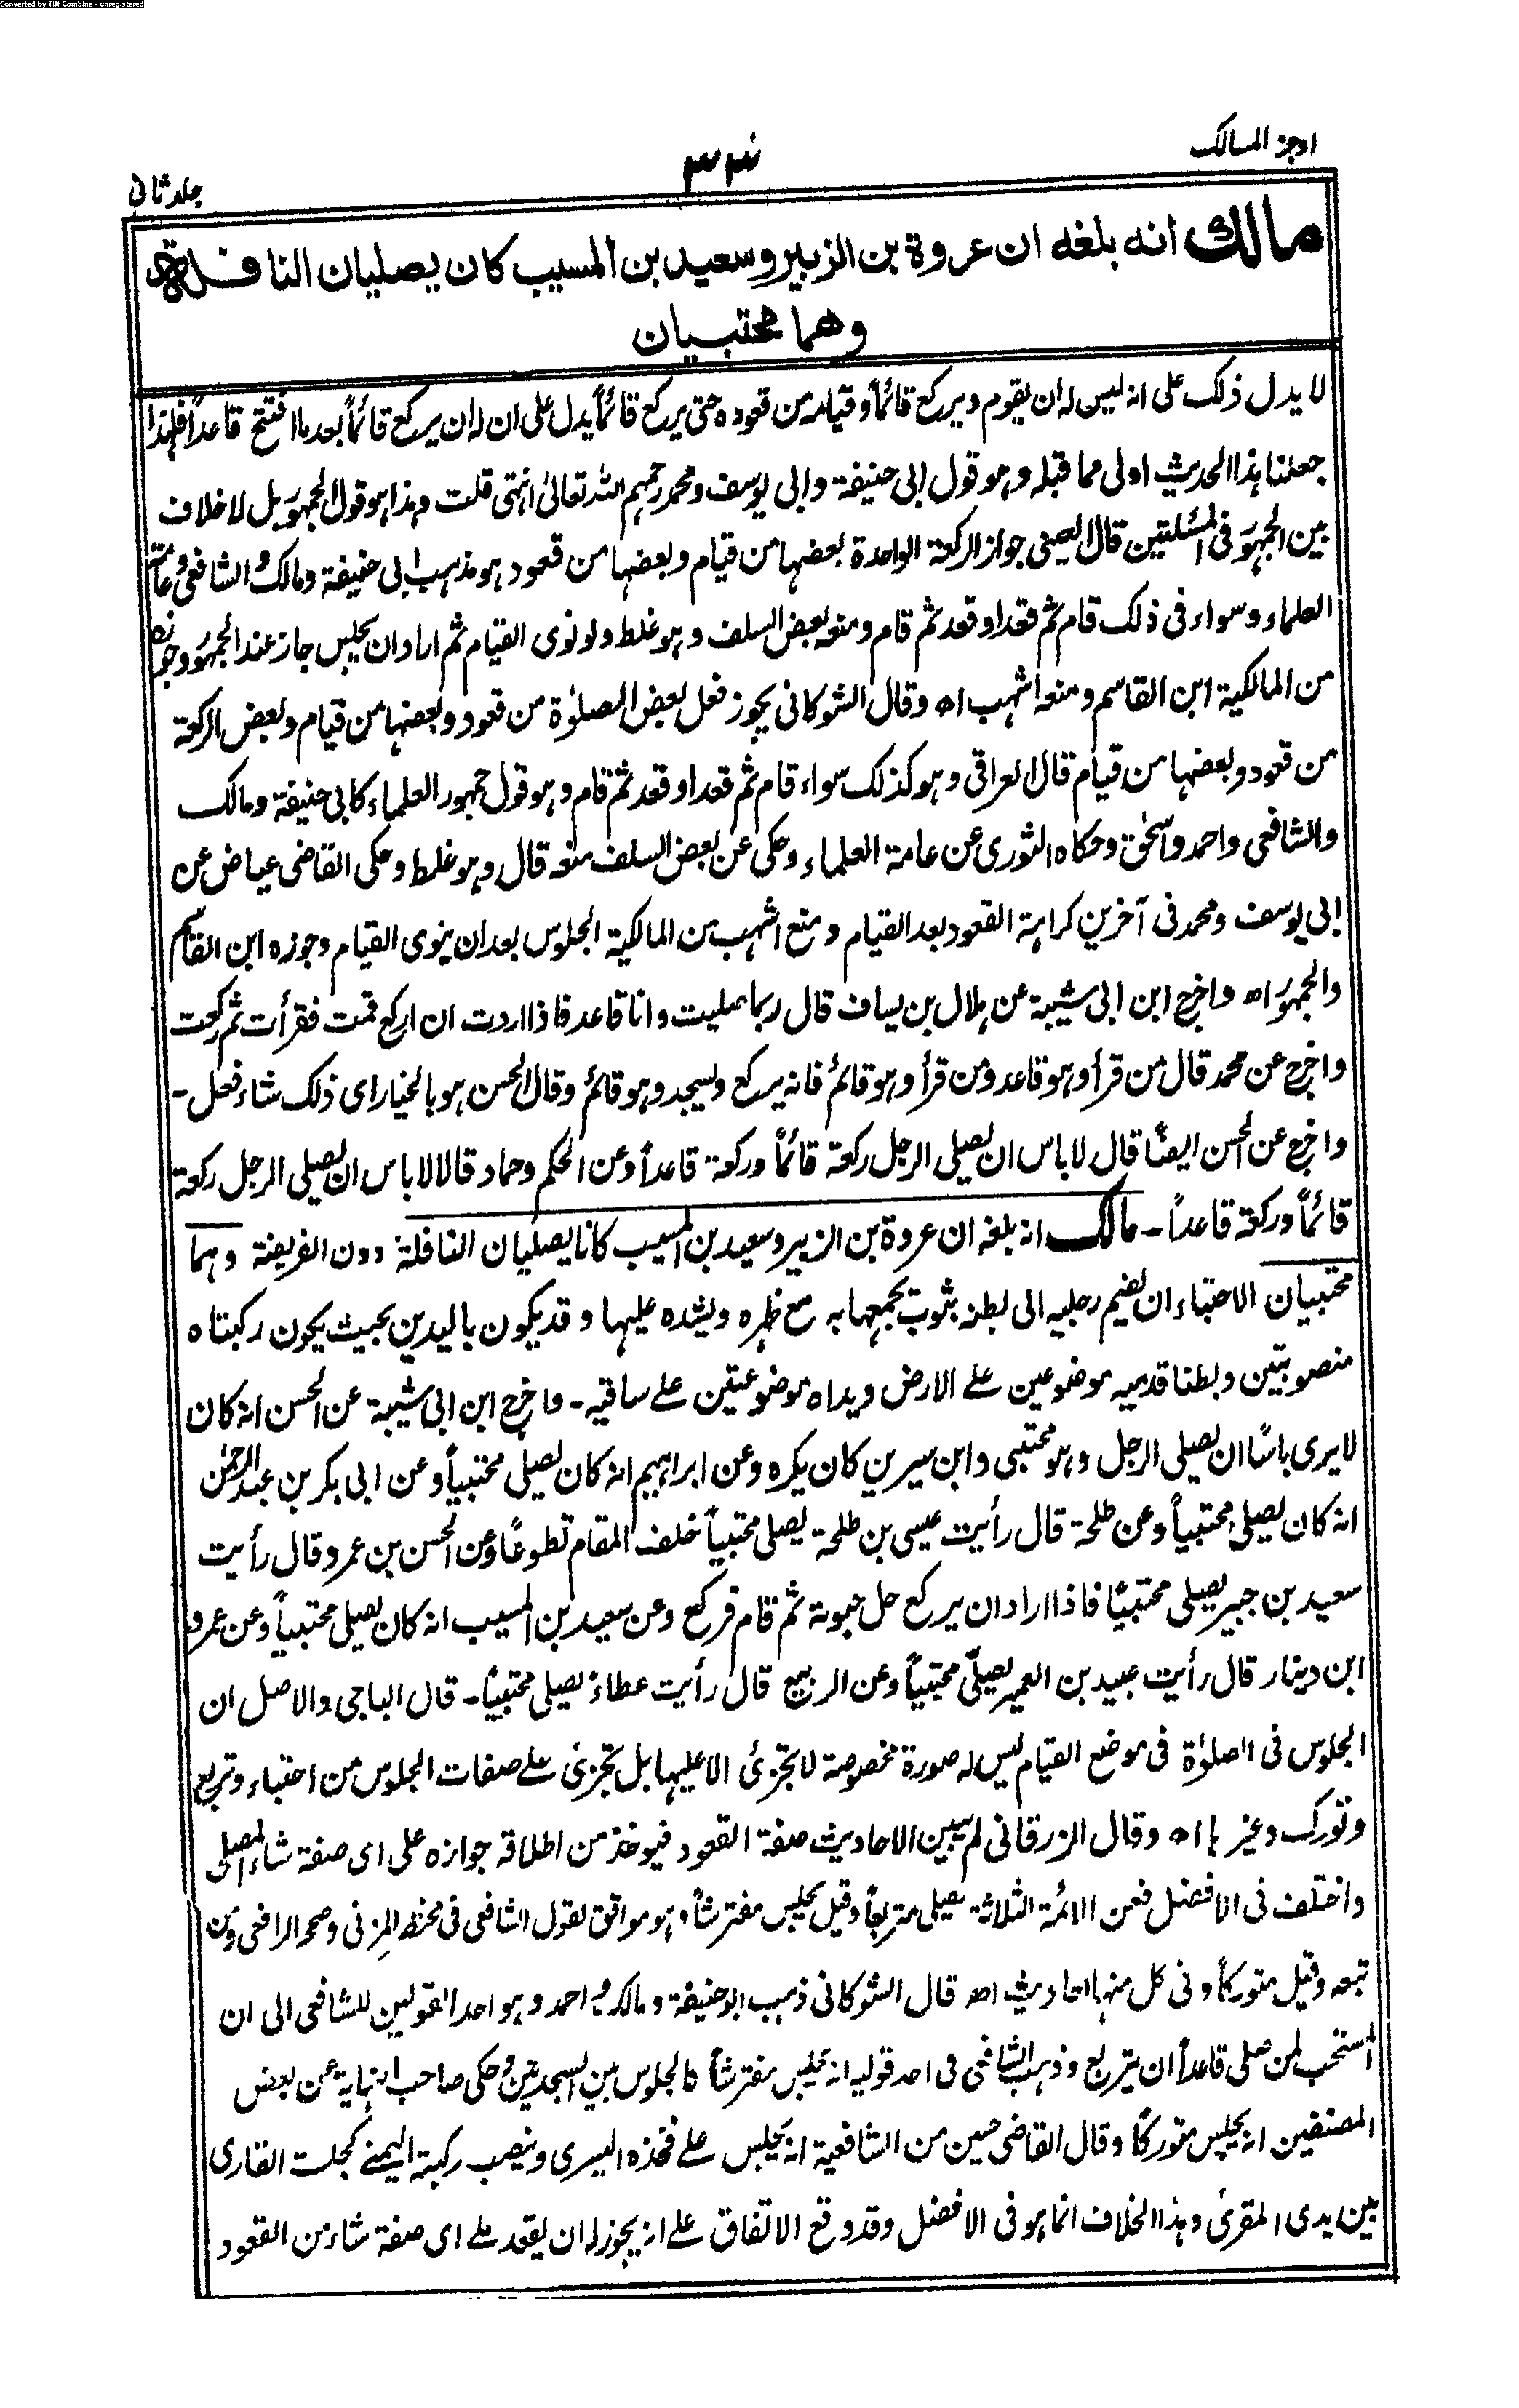 Converted by Tiff Combine - unregistered
اوجز المسالك
جلد ثانی
مالك انه بلغه ان عروة بن الزبير وسعيد بن المسيب كان يصليان النافلة
وهما محتبيان
لا يدل ذلك على انه ليس له ان يقوم ويركع قائماً وقيامه من قعوده حتى يركع قائماً يدل على ان له ان يركع قائماً بعد ما افتتح قاعداً فلهذا
جعلنا هذا الحديث اولى مما قبله وهو قول ابى حنيفة وابى يوسف ومحمد رحمهم الله تعالىٰ انتهى قلت وهذا هو قول الجمهور بل لا خلاف
بين الجمهور فى المسئلتين قال العينى جواز الركعة الواحدة بعضها من قيام وبعضها من قعود هو مذهب ابى حنيفة ومالك والشافعى وعامة
العلماء وسواء فى ذلك قام ثم قعد او قعد ثم قام ومنعه بعض السلف وهو غلط ولو نوى القيام ثم اراد ان يجلس جاز عند الجمهور وجوزه
من المالكية ابن القاسم ومنعه اشهب اه وقال الشوكانى يجوز فعل بعض الصلوٰة من قعود وبعضها من قيام وبعض الركعة
من قعود وبعضها من قيام قال العراقى وهو كذلك سواء قام ثم قعد او قعد ثم قام وهو قول جمهور العلماء كابى حنيفة ومالك
والشافعى واحمد واسحٰق وحكاه النورى عن عامة العلماء وحكى عن بعض السلف منعه قال وهو غلط وحكى القاضى عياض عن
ابى يوسف ومحمد فى آخرين كراهة القعود بعد القيام ومنع اشهب من المالكية الجلوس بعد ان ينوى القيام وجوزه ابن القاسم
والجمهور اه واخرج ابن ابى شيبة عن هلال بن يساف قال ربما صليت وانا قاعد فاذا اردت ان اركع قمت فقرأت ثم ركعت
واخرج عن محمد قال من قرأ وهو قاعد ومن قرأ وهو قائم فانه يركع ويسجد وهو قائم وقال الحسن هو بالخيار اى ذلك شاء فعل-
واخرج عن الحسن ايضًا قال لا باس ان يصلى الرجل ركعة قائماً وركعة قاعداً وعن الحكم وحماد قالا لا باس ان يصلى الرجل ركعة
قائماً وركعة قاعداً- مالك انه بلغه ان عروة بن الزبير وسعيد بن المسيب كانا يصليان النافلة دون الفريضة وهما
محتبيان الاحتباء ان يضم رجليه الى بطنه بثوب يجمعها به مع ظهره ويشده عليها وقد يكون باليدين بحيث يكون ركبتاه
منصوبتين وبطنا قدميه موضوعين على الارض ويداه موضوعتين على ساقيه- واخرج ابن ابى شيبة عن الحسن انه كان
لا يرى باسًا ان يصلى الرجل وهو محتبى وابن سيرين كان يكره وعن ابراهيم انه كان يصلى محتبياً وعن ابى بكر بن عبد الرحمٰن
انه كان يصلى محتبياً وعن طلحة قال رأيت عيسى بن طلحة يصلى محتبياً خلف المقام تطوعًا وعن الحسن بن عمرو قال رأيت
سعيد بن جبير يصلى محتبيًا فاذا اراد ان يركع حل حبوته ثم قام فركع وعن سعيد بن المسيب انه كان يصلى محتبياً وعن عمرو
ابن دينار قال رأيت عبيد بن العمير يصلّى محتبياً وعن الربيع قال رأيت عطاءً يصلى محتبيًا- قال الباجى والاصل ان
الجلوس فى الصلوٰة فى موضع القيام ليس له صورة مخصوصة لا تجزئ الا عليها بل تجزئ على صفات الجلوس من احتباء وتربع
وتورك وغيرها اه وقال الزرقانى لم يبين الاحاديث صفة القعود فيوخذ من اطلاقه جوازه على اى صفة شاء المصلى
واختلف فى الافضل فعن الائمة الثلاثة يصلى متربعاً وقيل يجلس مفترشاً وهو موافق لقول الشافعى فى مختصر المزنى وصححه الرافعى ومن
تبعه وقيل متوركاً وفى كل منها احاديث اه قال الشوكانى ذهب ابو حنيفة ومالك واحمد وهو احد القولين للشافعى الى ان
المستحب لمن صلى قاعداً ان يتربع وذهب الشافعى فى احد قوليه انه يجلس مفترشاً كالجلوس بين السجدتين وحكى صاحب النهاية عن بعض
المصنفين انه يجلس متوركًا وقال القاضى حسين من الشافعية انه يجلس على فخذه اليسرى وينصب ركبته اليمنى كجلسة القارى
بين يدى المقرئ وهذا الخلاف انما هو فى الافضل وقد وقع الاتفاق على انه يجوز له ان يقعد على اى صفة شاء من القعود